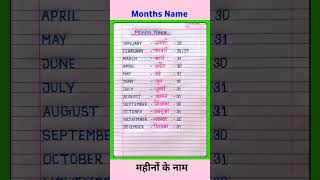 Months Name
Months Name
JANUARY - जनवरी - 31
FEBRUARY - फरवरी - 28/29
MARCH - मार्च - 31
APRIL - अप्रैल - 30
MAY - मई - 31
JUNE - जून - 30
JULY - जुलाई - 31
AUGUST - अगस्त - 31
SEPTEMBER - सितम्बर - 30
OCTOBER - अक्टूबर - 31
NOVEMBER - नवम्बर - 30
DECEMBER - दिसम्बर - 31
महीनों के नाम
APRIL
MAY
JUNE
JULY
AUGUST
SEPTEMBER
OCTOBER
30
31
30
31
31
30
31